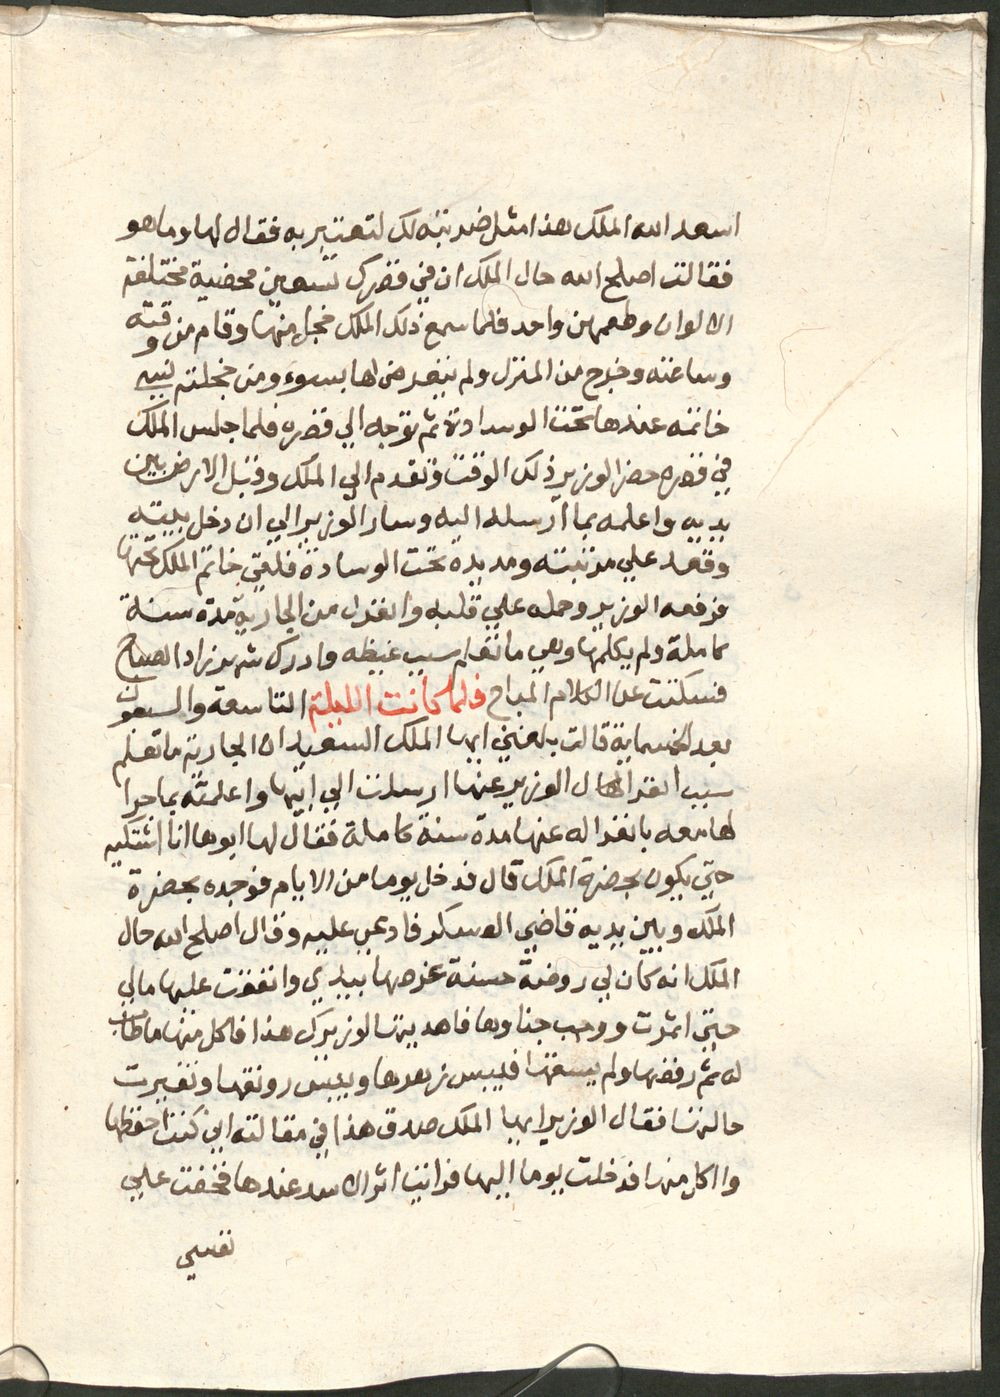 اسعد الله الملك هذا مثل ضربته لك لتعتبر به فقال لها وما هو
فقالت اصلح الله حال الملك ان في قصرك تسعين محضية مختلفة
الالوان وطعمهن واحد فلما سمع ذلك الملك خجل منها وقام من وقته
وساعته وخرج من المنزل ولم يتعرض لها بسوء ومن خجلته نسي
خاتمه عندها تحت الوسادة ثم توجه الي قصره فلما جلس الملك
في قصره حضر الوزير ذلك الوقت وتقدم الي الملك وقبل الارض بين
يديه واعلمه بما ارسله اليه وسار الوزير الي ان دخل بيته
وقعد علي مرتبته ومد يده تحت الوسادة فلقي خاتم الملك تحتها
فرفعه الوزير وحمله علي قلبه وانعزل من الجارية مدة سنة
كاملة ولم يكلمها وهي ما تعلم سبب غيظه وادرك شهرزاد الصباح
فسكتت عن الكلام المباح فلما كانت الليلة التاسعة والسبعون
بعد الخمسماية قالت بلغني ايها الملك السعيد ان الجارية ما تعلم
سبب انعزال الوزير عنها ارسلت الي ابيها واعلمته بما جرا
لها معه بانعزاله عنها مدة سنة كاملة فقال لها ابوها انا اشتكيه
حتي يكون بحضرة الملك قال فدخل يوما من الايام فوجده بحضرة
الملك وبين يديه قاضي العسكر فادعي عليه وقال اصلح الله حال
الملك انه كان لي روضة حسنة غرصها بيدي وانفقت عليها مالي
حتي اثمرت ووجب جناوها فاهديتها لوزيرك هذا فاكل منها ما طاب
له ثم رفضها ولم يسقها فيبس زهرها ويبس رونقها وتغيرت
حالتها فقال الوزير ايها الملك صدق هذا في مقالته اني كنت احفظها
وااكل منها فدخلت يوما اليها فرايت اثر الاسد عندها فخفت علي
نفسي